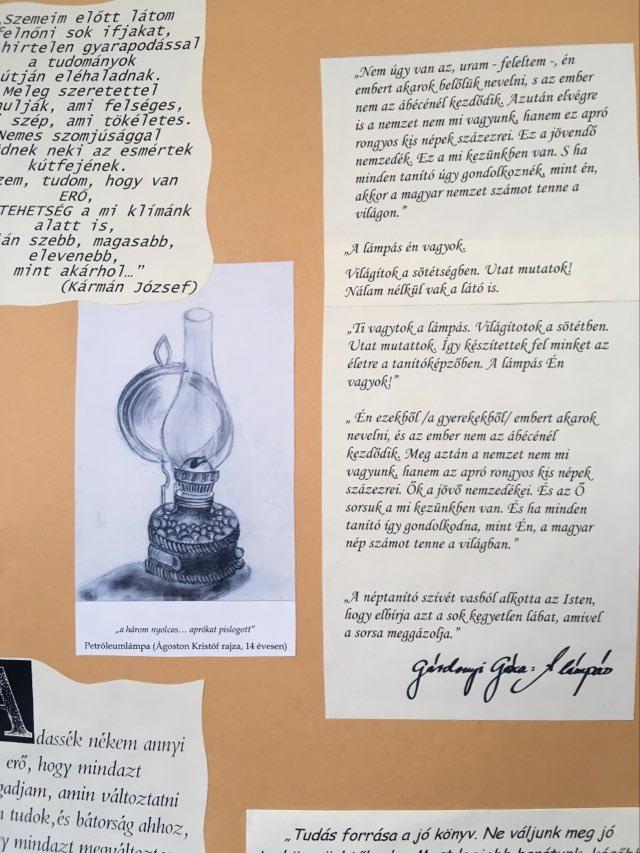 „Szemeim előtt látom
felnőni sok ifjakat,
hirtelen gyarapodással
a tudományok
útján eléhaladnak.
Meleg szeretettel
ami felséges,
szép, ami tökéletes.
Nemes szomjúsággal
neki az esmértek
kútfejének.
tudom, hogy van
ERŐ,
TEHETSÉG a mi klímánk
alatt is,
szebb, magasabb,
elevenebb,
mint akárhol…”
(Kármán József)
„a három nyolcas… aprókat pislogott”
Petróleumlámpa (Ágoston Kristóf rajza, 14 évesen)
Adassék nékem annyi
erő, hogy mindazt
amin változtatni
tudok,és bátorság ahhoz,
mindazt
„Nem úgy van az, uram - feleltem -, én
embert akarok belőlük nevelni, s az ember
nem az ábécénél kezdődik. Azután elvégre
is a nemzet nem mi vagyunk, hanem ez apró
rongyos kis népek százezrei. Ez a jövendő
nemzedék. Ez a mi kezünkben van. S ha
minden tanító úgy gondolkoznék, mint én,
akkor a magyar nemzet számot tenne a
világon.”
„A lámpás én vagyok.
Világítok a sötétségben. Utat mutatok!
Nálam nélkül vak a látó is.
„Ti vagytok a lámpás. Világítotok a sötétben.
Utat mutattok. Így készítettek fel minket az
életre a tanítóképzőben. A lámpás Én
vagyok!”
„ Én ezekből /a gyerekekből/ embert akarok
nevelni, és az ember nem az ábécénél
kezdődik. Meg aztán a nemzet nem mi
vagyunk, hanem az apró rongyos kis népek
százezrei. Ők a jövő nemzedékei. És az Ő
sorsuk a mi kezünkben van. És ha minden
tanító így gondolkodna, mint Én, a magyar
nép számot tenne a világban.”
„A néptanító szívét vasból alkotta az Isten,
hogy elbírja azt a sok kegyetlen lábat, amivel
a sorsa meggázolja.”
Gárdonyi Géza: A lámpás
„Tudás forrása a jó könyv. Ne váljunk meg jó